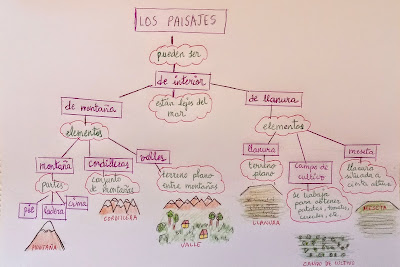 LOS PAISAJES
pueden ser
de interior
están lejos del
mar
de montaña
de llanura
elementos
elementos
montaña
cordilleras
valles
llanura
campo de
cultivo
meseta
partes
conjunto
de montañas
terreno plano
entre montañas
terreno
plano
se trabaja
para obtener
patatas, tomates,
cereales, etc.
llanura
situada a
cierta altura
pie
ladera
cima
MONTAÑA
CORDILLERA
VALLE
LLANURA
CAMPO DE CULTIVO
MESETA